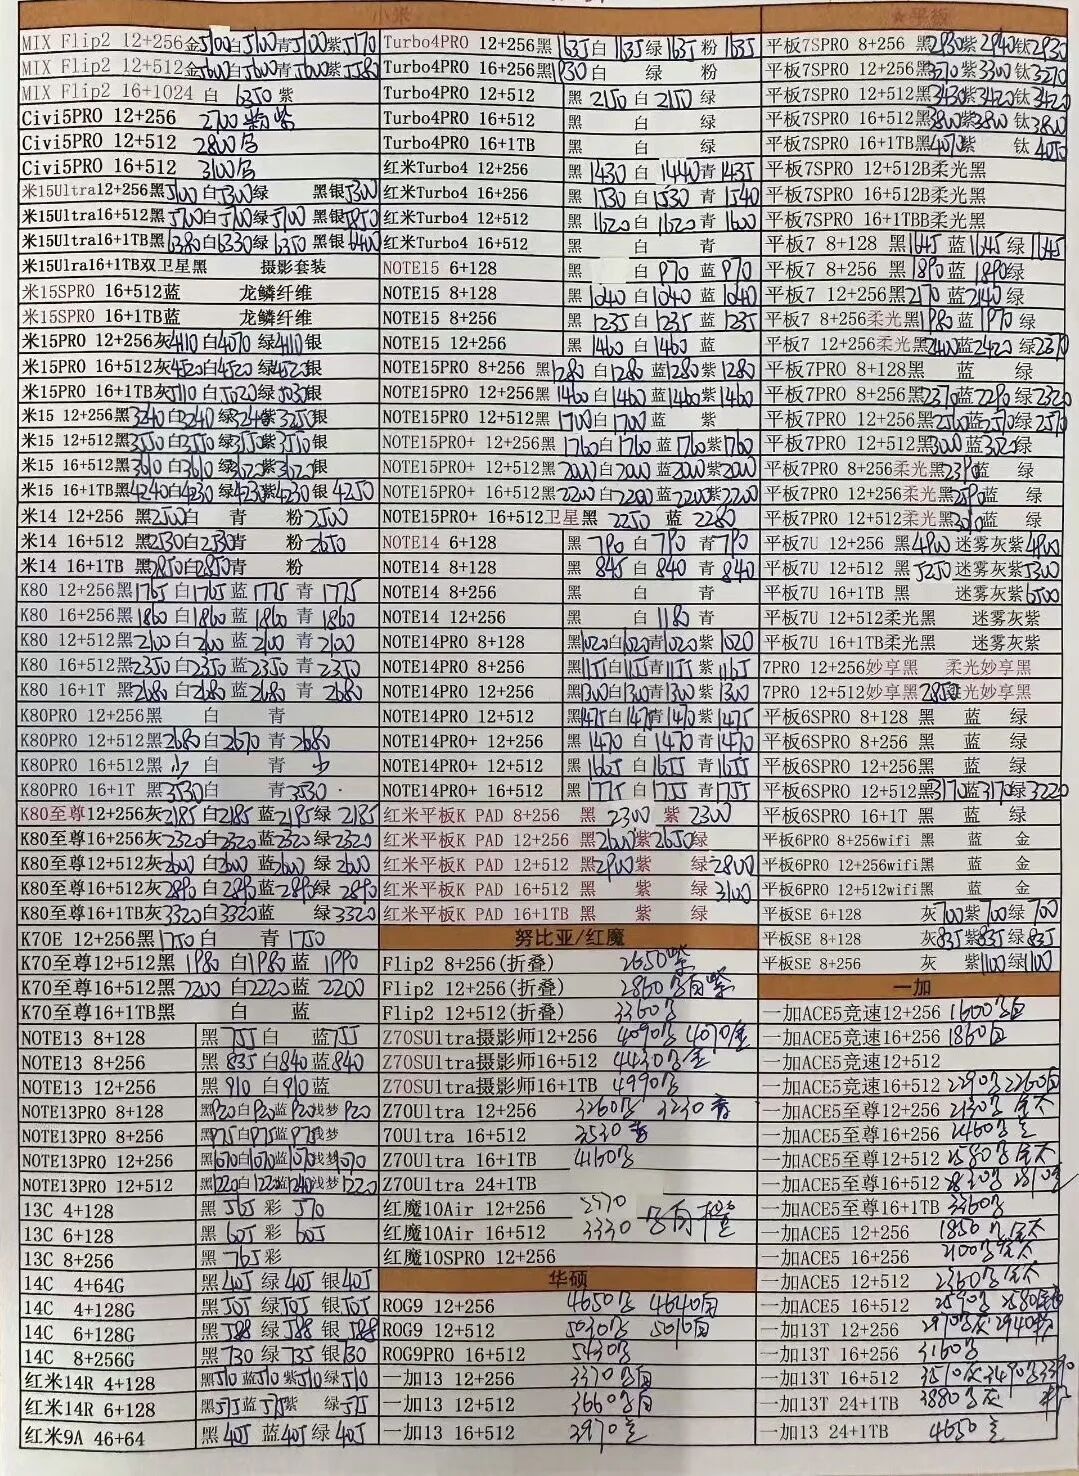 小米
MIX Flip2 12+256金5100白5100青5100紫5170
MIX Flip2 12+512金5600白5600青5600紫5580
MIX Flip2 16+1024 白 6350 紫
Civi5PRO 12+256 2700 粉紫
Civi5PRO 12+512 2800
Civi5PRO 16+512 3100
米15Ultra12+256黑5100白5300绿 黑银5300
米15Ultra16+512黑5700白5700绿5700 黑银5850
米15Ultra16+1TB黑6380白6330绿6350 黑银6400
米15Ulra16+1TB双卫星黑 摄影套装
米15SPRO 16+512蓝 龙鳞纤维
米15SPRO 16+1TB蓝 龙鳞纤维
米15PRO 12+256灰4110白4070绿4110银
米15PRO 16+512灰4520白4520绿4520银
米15PRO 16+1TB灰5110白5020绿5030银
米15 12+256黑3240白3240绿3240紫3250银
米15 12+512黑3550白3550绿3550紫3550银
米15 16+512黑3610白3610绿3620紫3620银
米15 16+1TB黑4240白4230绿4230紫4230银 4250
米14 12+256 黑2500白 青 粉2500
米14 16+512 黑2530白2530青 粉2650
米14 16+1TB 黑2850白2850青 粉
K80 12+256黑1765白1765蓝1775青1775
K80 16+256黑1860白1860蓝1860青1860
K80 12+512黑2100白2100蓝2100青2100
K80 16+512黑2350白2350蓝2350青2350
K80 16+1T 黑2680白2680蓝2680青2680
K80PRO 12+256黑 白 青
K80PRO 12+512黑2680白2670青2680
K80PRO 16+512黑少 白 青 少
K80PRO 16+1T 黑3530白 青3530
K80至尊12+256灰2185白2185蓝2185绿2185
K80至尊16+256灰2320白2320蓝2320绿2320
K80至尊12+512灰2600白2600蓝2600绿2600
K80至尊16+512灰2890白2890蓝2890绿2890
K80至尊16+1TB灰3320白3320蓝 绿3320
K70E 12+256黑1750白 青1750
K70至尊12+512黑1980白1980蓝1990
K70至尊16+512黑2200白2220蓝2200
K70至尊16+1TB黑 白 蓝
NOTE13 8+128 黑755白 蓝755
NOTE13 8+256 黑835白840蓝840
NOTE13 12+256 黑910白910蓝
NOTE13PRO 8+128 黑920白920蓝920浅梦920
NOTE13PRO 8+256 黑975白975蓝975浅梦
NOTE13PRO 12+256 黑1070白1070蓝1070浅梦1070
NOTE13PRO 12+512 黑1220白1220蓝1240浅梦1220
13C 4+128 黑565彩570
13C 6+128 黑605彩605
13C 8+256 黑765彩
14C 4+64G 黑405绿405银405
14C 4+128G 黑505绿505银505
14C 6+128G 黑588绿588银588
14C 8+256G 黑730绿735银730
红米14R 4+128 黑510蓝510紫510绿510
红米14R 6+128 黑575蓝575紫 绿575
红米9A 46+64 黑405蓝405绿405
Turbo4PRO 12+256黑1635白1635绿1635粉1635
Turbo4PRO 16+256黑1930白 绿 粉
Turbo4PRO 12+512 黑2150白2150绿
Turbo4PRO 16+512 黑 白 绿
Turbo4PRO 16+1TB 黑 白 绿
红米Turbo4 12+256 黑1430白1440青1435
红米Turbo4 16+256 黑1530白1530青1540
红米Turbo4 12+512 黑1620白1620青1600
红米Turbo4 16+512 黑 白 青
NOTE15 6+128 黑 白970蓝970
NOTE15 8+128 黑1040白1040蓝1040
NOTE15 8+256 黑1235白1235蓝1235
NOTE15 12+256 黑1460白1460蓝
NOTE15PRO 8+256黑1280白1280蓝1280紫1280
NOTE15PRO 12+256黑1460白1460蓝1460紫1460
NOTE15PRO 12+512黑1700白1700蓝 紫
NOTE15PRO+ 12+256黑1760白1760蓝1760紫1760
NOTE15PRO+ 12+512黑2000白2000蓝2000紫2000
NOTE15PRO+ 16+512黑2200白2200蓝2200紫2200
NOTE15PRO+ 16+512卫星黑 2250 蓝 2280
NOTE14 6+128 黑790白790青790
NOTE14 8+128 黑845白840青840
NOTE14 8+256 黑 白 青
NOTE14 12+256 黑 白1180青
NOTE14PRO 8+128 黑1020白1020青1020紫1020
NOTE14PRO 8+256 黑1155白1155青1155紫1165
NOTE14PRO 12+256 黑1300白1300青1300紫1300
NOTE14PRO 12+512 黑1475白1475青1470紫1475
NOTE14PRO+ 12+256 黑1470白1470青1470
NOTE14PRO+ 12+512 黑1665白1655青1655
NOTE14PRO+ 16+512 黑1775白1755青1755
红米平板K PAD 8+256 黑 2300 紫 2300
红米平板K PAD 12+256 黑2600紫2650绿
红米平板K PAD 12+512 黑2900紫 绿2800
红米平板K PAD 16+512 黑 紫 绿3100
红米平板K PAD 16+1TB 黑 紫 绿
努比亚/红魔
Flip2 8+256(折叠) 2650紫
Flip2 12+256(折叠) 2860
Flip2 12+512(折叠) 3360
Z70SUltra摄影师12+256 4090 4070
Z70SUltra摄影师16+512 4430
Z70SUltra摄影师16+1TB 4990
Z70Ultra 12+256 3260 3230青
70Ultra 16+512 3530青
Z70Ultra 16+1TB 4160
Z70Ultra 24+1TB
红魔10Air 12+256 2970
红魔10Air 16+512 3330
红魔10SPRO 12+256
华硕
ROG9 12+256 4650 4640白
ROG9 12+512 5030 5010白
ROG9PRO 16+512 5430
一加13 12+256 3370
一加13 12+512 3660
一加13 16+512 3970
★平板
平板7SPRO 8+256 黑2930紫2940钛2930
平板7SPRO 12+256黑3270紫3300钛3270
平板7SPRO 12+512黑3430紫3420钛3420
平板7SPRO 16+512黑3800紫3800钛3800
平板7SPRO 16+1TB黑4070紫 钛4050
平板7SPRO 12+512B柔光黑
平板7SPRO 16+512B柔光黑
平板7SPRO 16+1TBB柔光黑
平板7 8+128 黑1645蓝1645绿1645
平板7 8+256 黑1890蓝1890绿
平板7 12+256黑2170蓝2140绿
平板7 8+256柔光黑1980蓝1970绿
平板7 12+256柔光黑2400蓝2420绿2370
平板7PRO 8+128黑 蓝 绿
平板7PRO 8+256黑2370蓝2290绿2320
平板7PRO 12+256黑2560蓝2570绿2570
平板7PRO 12+512黑3000蓝3020绿
平板7PRO 8+256柔光黑2390蓝 绿
平板7PRO 12+256柔光黑2590蓝 绿
平板7PRO 12+512柔光黑3010蓝 绿
平板7U 12+256 黑4900迷雾灰紫4900
平板7U 12+512 黑5250迷雾灰紫5300
平板7U 16+1TB 黑 迷雾灰紫6500
平板7U 12+512柔光黑 迷雾灰紫
平板7U 16+1TB柔光黑 迷雾灰紫
7PRO 12+256妙享黑 柔光妙享黑
7PRO 12+512妙享黑2850柔光妙享黑
平板6SPRO 8+128 黑 蓝 绿
平板6SPRO 8+256 黑 蓝 绿
平板6SPRO 12+256黑 蓝 绿
平板6SPRO 12+512黑3170蓝3170绿3220
平板6SPRO 16+1T 黑 蓝 绿
平板6PRO 8+256wifi 黑 蓝 金
平板6PRO 12+256wifi黑 蓝 金
平板6PRO 12+512wifi黑 蓝 金
平板SE 6+128 灰700紫700绿700
平板SE 8+128 灰835紫835绿835
平板SE 8+256 灰 紫1100绿1100
一加
一加ACE5竞速12+256 1600
一加ACE5竞速16+256 1860白
一加ACE5竞速12+512
一加ACE5竞速16+512 2290 2260白
一加ACE5至尊12+256 2130
一加ACE5至尊16+256 2460
一加ACE5至尊12+512 2580
一加ACE5至尊16+512 2820
一加ACE5至尊16+1TB 3360
一加ACE5 12+256 1850
一加ACE5 16+256 2100
一加ACE5 12+512 2360
一加ACE5 16+512 2590 2580
一加13T 12+256 2970灰 2940粉
一加13T 16+256 3160
一加13T 16+512 3510灰3490
一加13T 24+1TB 3880灰
一加13 24+1TB 4650